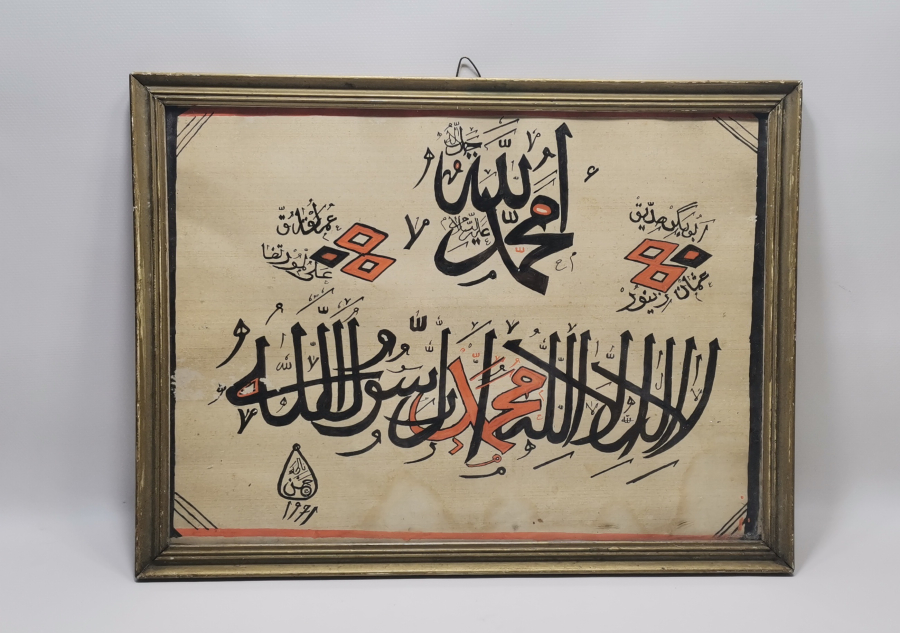 الله جل جلاله
محمد عليه السلام
ابو بكر صديق
عثمان زينور
عمر الفاروق
على المورتضا
لا اله الا الله محمد رسول الله
حسن
١٩٦١